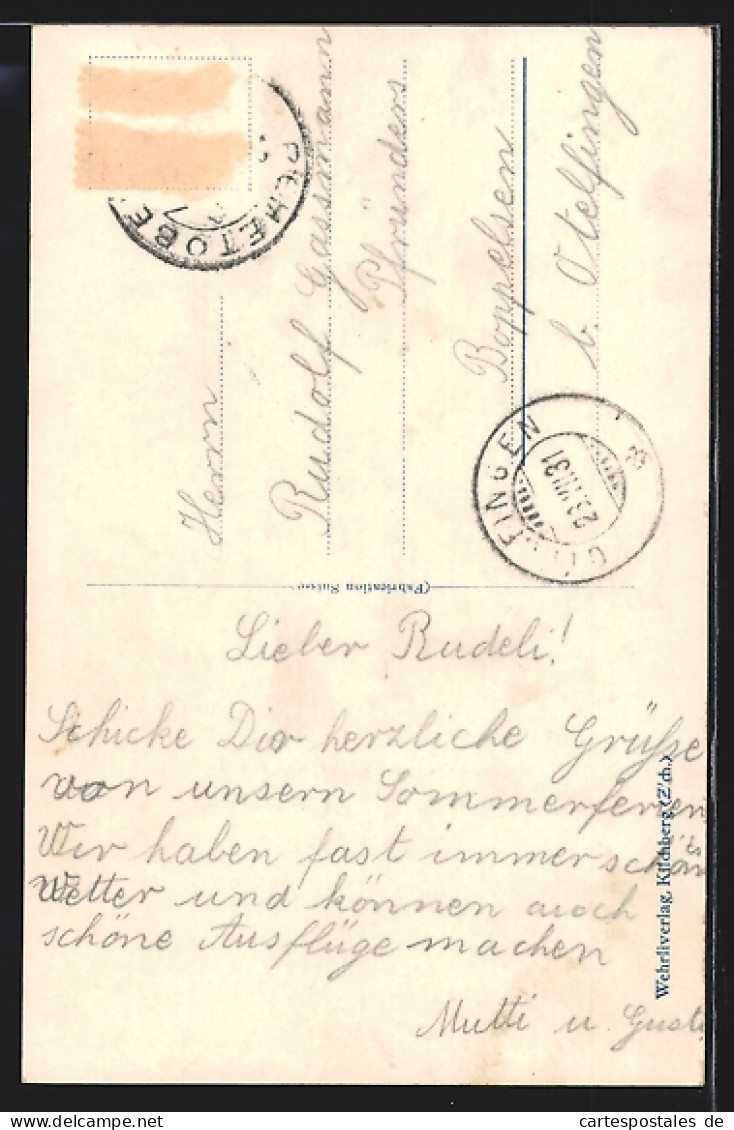 Herrn
Rudolf Gassmann
Pfründers
Boppelsen
b. Otelfingen
REHETOBE
FINGEN
23.VII.31
(Fabrication Suisse)
Lieber Rudeli!
Schicke Dir herzliche Grüsse
von unsern Sommerferien
Wir haben fast immer schön's
Wetter und können auch
schöne Ausflüge machen
Mutti u. Gusti
Wehrliverlag, Kilchberg (Z'ch.)
cartespostales de
cartespostales de